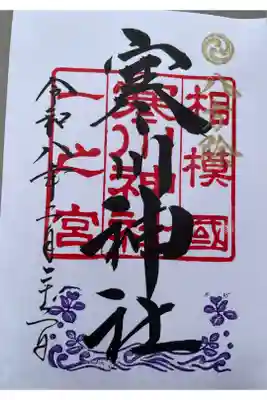 相模國
寒川神社
一之宮
八方除
寒川神社
令和八年二月二十一日